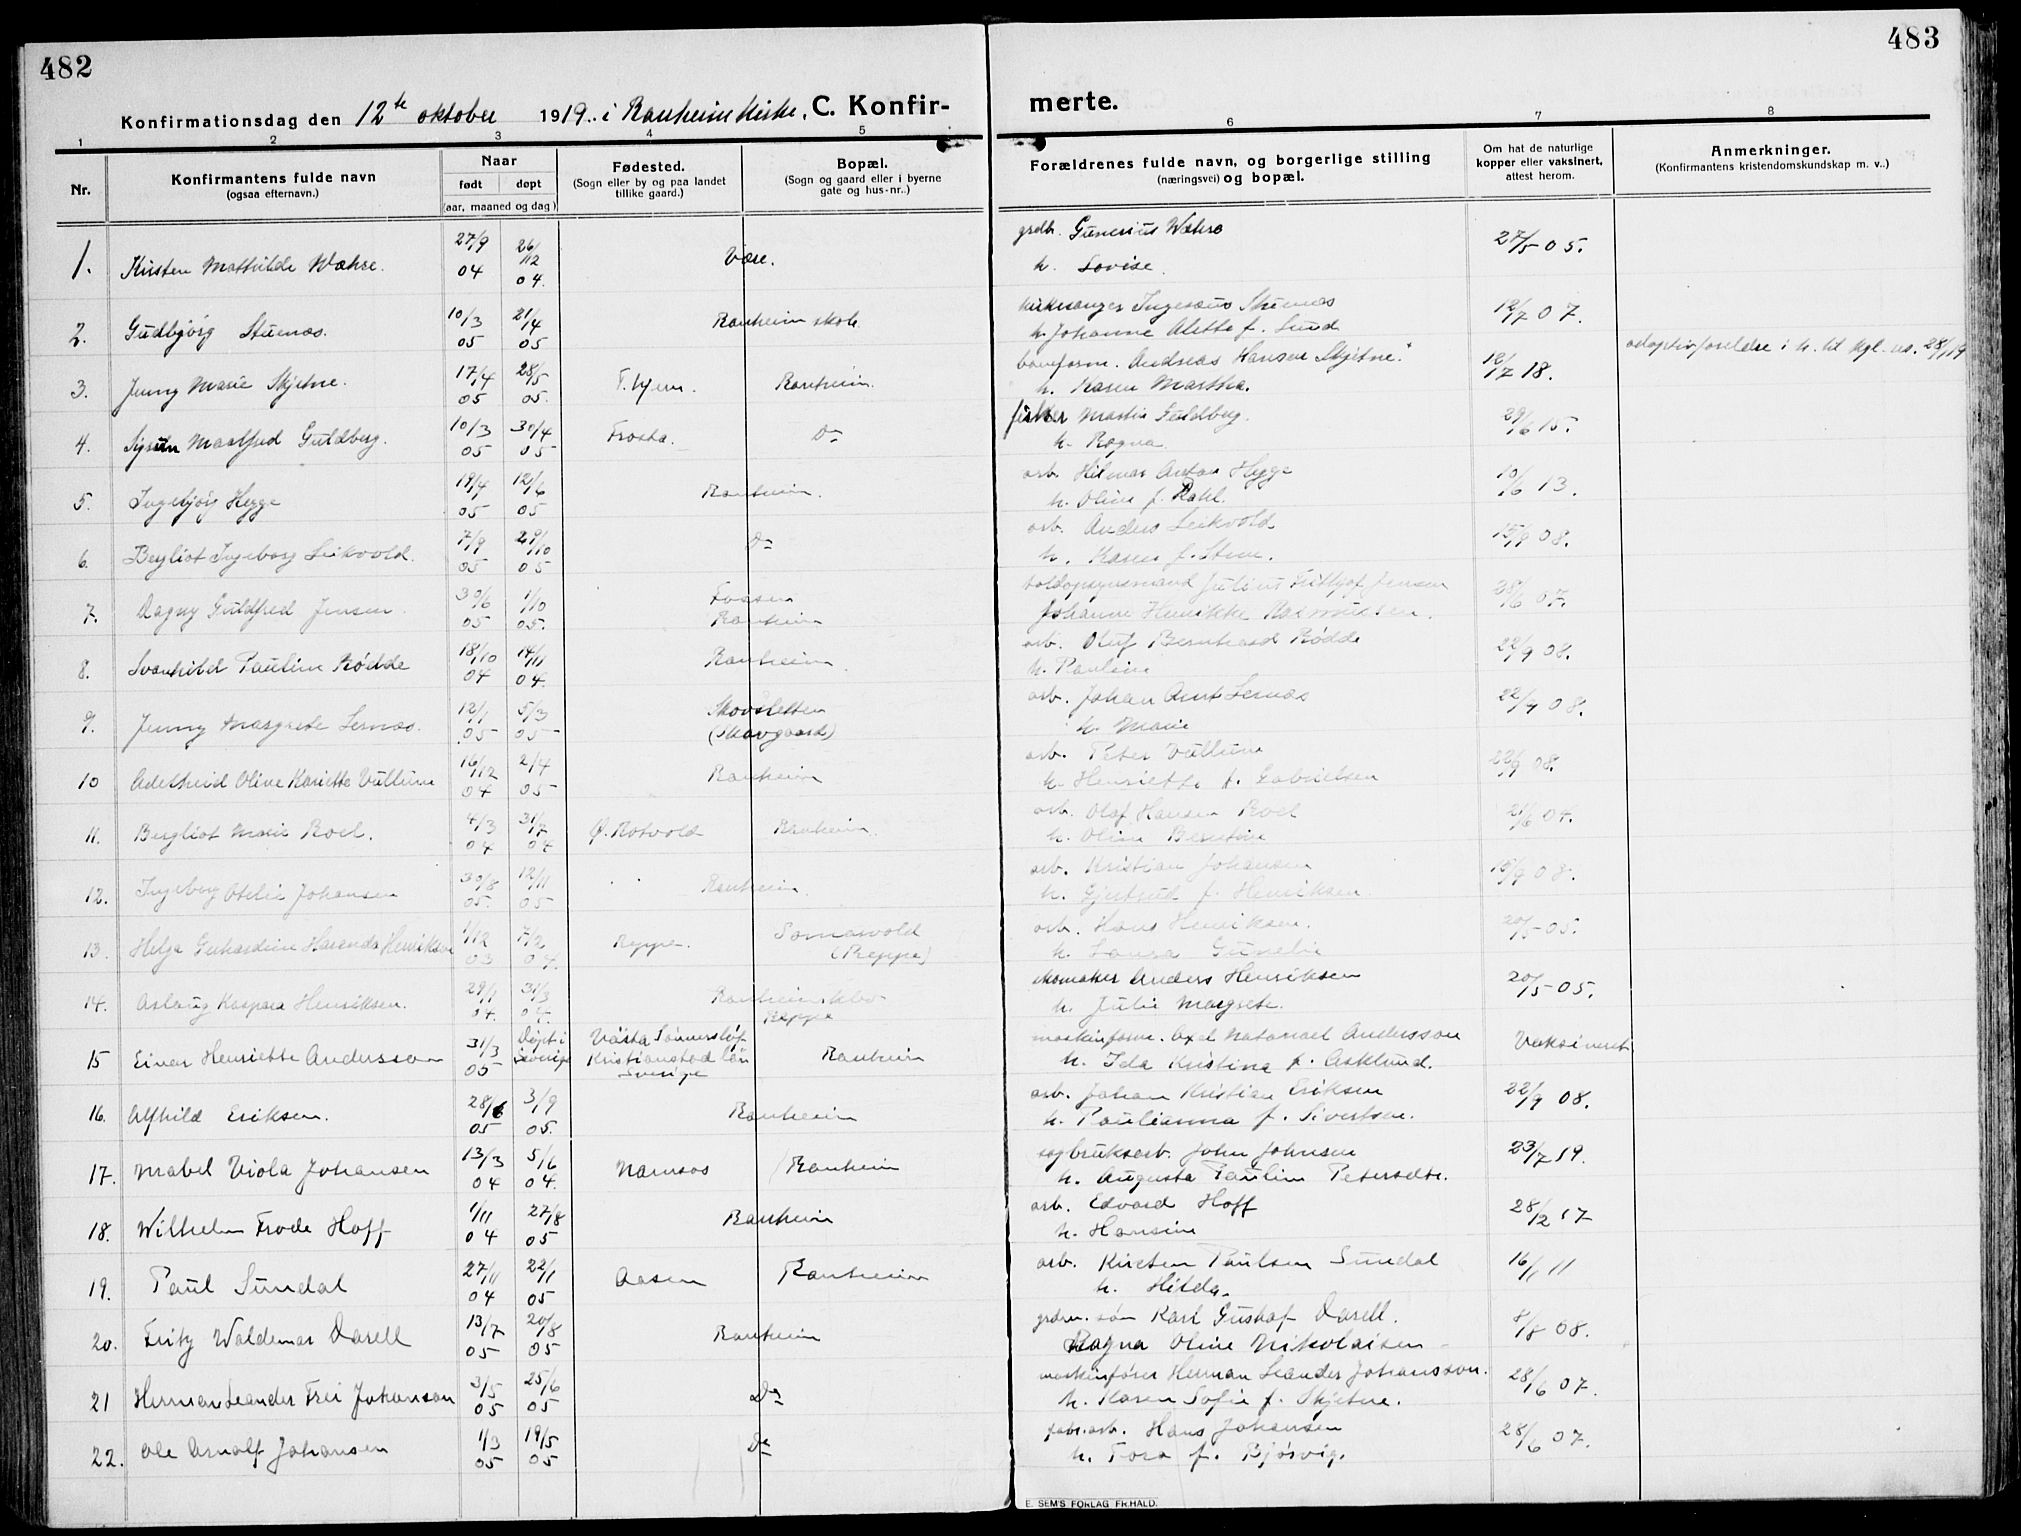 482
483
Konfirmationsdag den 12te oktober 1919. i Ranheim kirke. C. Konfir-
merte.
1 2 3 4 5 6 7 8
Nr.
Konfirmantens fulde navn
(ogsaa efternavn.)
Naar
født døpt
(aar, maaned og dag)
Fødested.
(Sogn eller by og paa landet
tillike gaard.)
Bopæl.
(Sogn og gaard eller i byerne
gate og hus-nr..)
Forældrenes fulde navn, og borgerlige stilling
(næringsvei) og bopæl.
Om hat de naturlige
kopper eller vaksinert,
attest herom.
Anmerkninger.
(Konfirmantens kristendomskundskap m. v..)
27/9 26/12 grdb. Gunerius Wæhre 27/5 05.
1. Kirsten Mathilde Wæhre. 04 04. Være. h. Lovise.
10/3 21/4 kirkesanger Ingebrigt Stuenæs 12/7 07.
2. Gudbjörg Stuenæs. 05 05 Ranheim skole h. Johanne Alette f. Lund
17/4 28/5 Andreas Hansen Skjetne. 12/7 18. adoptivforeldre i h. til kgl. res. 28/1 19
3. Jenny Marie Skjetne. 05 05. Ranheim. h. Karen Martha.
10/3 30/4 fisker Martin Guldberg. 29/6 15.
4. Maalfred Guldberg. 05 05 Frosta. Do h. Ragna
19/4 12/6 arb. Hilmar Anton Hegge 10/6 13.
5. Ingebjörg Hegge 05 05 Ranheim. h. Oline f.
7/9 29/10 arb. Anders Leikvold 15/9 08.
6. Bergliot Ingeborg Leikvold. 05 05 Do h. Karen f. Stene.
30/6 1/10 Fossen toldopsynsmand Julius Fritjof Jensen 28/6 07.
7. Dagny Guldfred Jensen. 05 05. Ranheim Johanne Henrikke Rasmussen.
18/10 14/11 arb. Oluf Bernhard Rödde 22/9 08.
8. Svanhild Pauline Rödde 04 04. Ranheim. h. Pauline
12/1 5/3 Skovsletten arb. Johan Arnt Lernæs 22/9 08.
9. Jenny Margrete Lernæs. 05 05 (Skavgaard) h. Marie
16/12 2/4 arb. Peter Vullum 22/9 08.
10 Adelheid Oline Karietta Vullum 04 05 Ranheim h. Henriette f. Gabrielsen
4/3 31/7 arb. Olaf Hansen Roel 21/6 04.
11. Bergliot Marie Roel. 04 04 Ø. Rotvold Ranheim. h. Oline Berntine
30/8 12/11 arb. Kristian Johansen 15/9 08.
12. Ingeborg Otelie Johansen 05. 05 Ranheim. h. Gjertrud f. Henriksen.
1/12 7/2 Reppe. arb. Hans Henriksen. 20/5 05.
13. Helga Henriksen 03 04. (Reppe) h. Laura
29/1 31/3 skomaker Anders Henriksen 20/5 05.
14. Aslaug Kaspara Henriksen. 04. 04. Reppe h. Julie Margrete.
31/3 Døpt i Västa maskinform. Axel Natanael Andersson Vaksineret
15 Einar Henriette Andersson 05 Sverige Kristianstad län Sverige Ranheim h. Ida Kristina f. Asklund.
28/6 3/9 arb. Johan Kristian Eriksen 22/9 08.
16. Alfhild Eriksen. 05 05. Ranheim h. Paulianna f. Sivertsen.
13/3 5/6 sagbruksarb. John Johnsen 23/7 19.
17. Mabel Viola Johansen 04 04. Namsos Ranheim h. Augusta Pauline
1/11 27/8 arb. Edvard Hoff 28/2 17
18. Wilhelm Frode Hoff 04 05 Ranheim h. Hansine
27/11 22/1 arb. Kirsten Paulsen Sundal 16/1 11
19. Paul Sundal 04 05 Aasen Ranheim h. Hilda.
13/7 20/8 grdm. søn Karl Gustaf Darell. 8/8 08.
20. Fritz Waldemar Darell 05 05 Ranheim Ragna Oline Nikolaisen
3/5 25/6 maskinfører Herman Leander Johansson. 28/6 07.
21 Herman Leander Frei Johanson 05 05 Do h. Karen Sofie f. Skjetne.
1/3 19/5 fabr.arb. Hans Johansen 28/6 07.
22. Ole Arnolf Johansen 05 05 Do h. Tora f. Bjørvig.
E. SEM'S FORLAG FR.HALD.